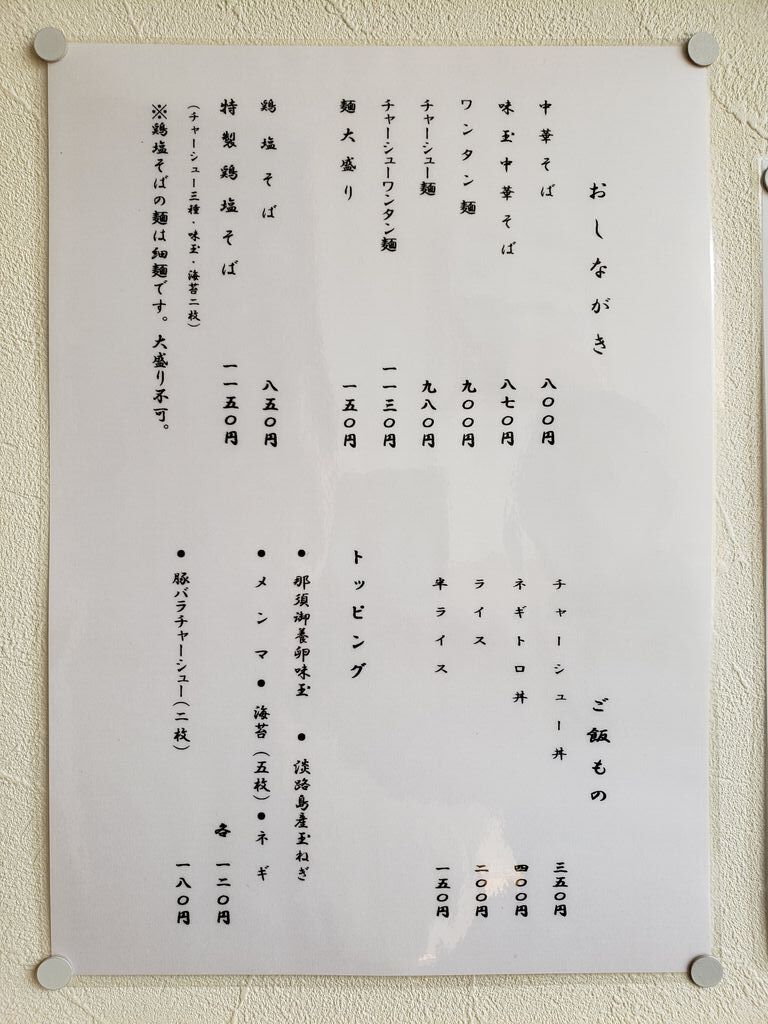 おしながき
中華そば 八〇〇円
味玉中華そば 八七〇円
ワンタン麺 九〇〇円
チャーシュー麺 九八〇円
チャーシューワンタン麺 一一三〇円
麺大盛り 一五〇円
鶏塩そば 八五〇円
特製鶏塩そば 一一五〇円
(チャーシュー三種・味玉・海苔二枚)
※鶏塩そばの麺は細麺です。大盛り不可。
ご飯もの
チャーシュー丼 三五〇円
ネギトロ丼 四〇〇円
ライス 二〇〇円
半ライス 一五〇円
トッピング
●那須御養卵味玉 ●淡路島産玉ねぎ
●メンマ ●海苔(五枚) ●ネギ
各 一二〇円
●豚バラチャーシュー(二枚) 一八〇円